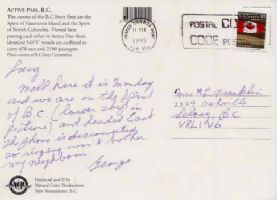 ACTIVE PASS, B.C.
The names of the B.C. Ferry fleet are the
Spirit of Vancouver Island and the Spirit
of British Columbia. Viewed here
passing each other in Active Pass these
identical 549'5" vessels are outfitted to
carry 470 cars and 2100 passengers.
Photo courtesy of B.C. Ferry Corporation
1995
POSTAL CODE
CODE POSTAL
Well here it is Monday
and we are on the Spirit
of B.C. (lower ship in
picture) and headed East
The phone is disconnected
so ringing won't bother
my neighbour
George
Mrs
Franklin
Sidney BC
V8L 1V6
Produced and © by
Natural Color Productions
New Westminster, B.C.